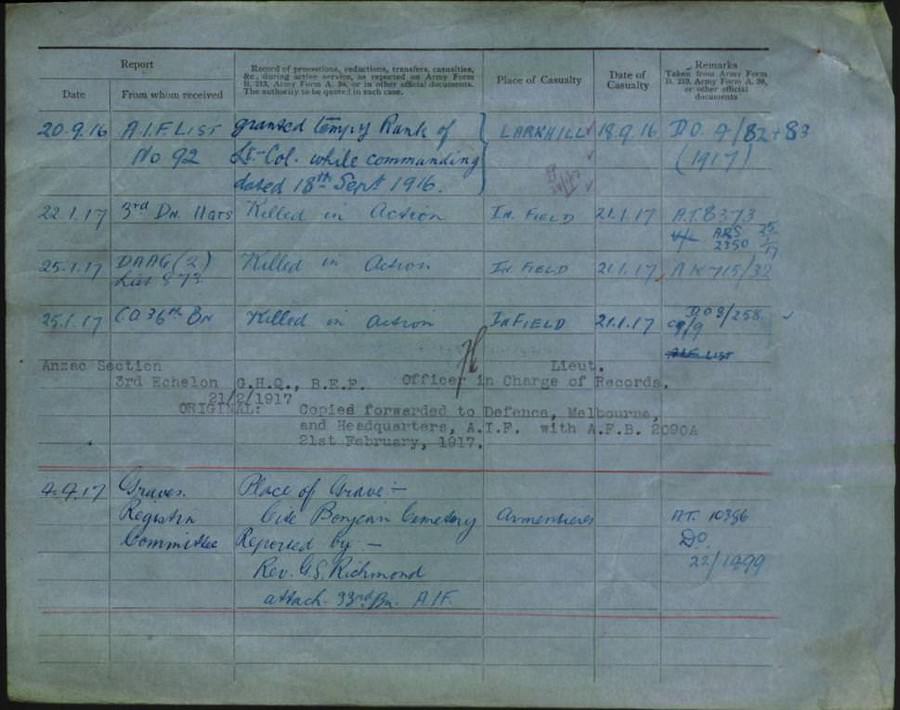 Report
Record of promotions, reductions, transfers, casualties,
&c., during active service, as reported on Army Form
B. 213, Army Form A. 36, or in other official documents.
The authority to be quoted in each case.
Place of Casualty
Date of
Casualty
Remarks
Taken from Army Form
B. 213, Army Form A. 36,
or other official
documents
Date
From whom received
20.9.16 A.I.F. LIST granted tempy Rank of LARKHILL 18.9.16 D.O. A/82+83
No 92 Lt-Col. while commanding (1917)
dated 18th Sept 1916.
22.1.17 3rd Dn. Hqrs Killed in Action In FIELD 21.1.17 A.T. 8373
2350
25.1.17 DAAG (2) Killed in Action In FIELD 21.1.17 AK 715/32
List 873
25.1.17 CO 36th Bn Killed in action In FIELD 21.1.17 DO 8/258
A.I.F. LIST
Anzac Section Lieut.
3rd Echelon G.H.Q., B.E.F. Officer in Charge of Records.
21/2/1917
ORIGINAL: Copied forwarded to Defence, Melbourne,
and Headquarters, A.I.F. with A.F.B. 2090A
21st February, 1917.
4.4.17 Graves Place of Grave :-
Registrn Cite Bonjean Cemetery Armentieres A.T. 10396
Committee Reported by - Do.
Rev. G.S. Richmond 22/1499
attach. 33rd Bn. A.I.F.